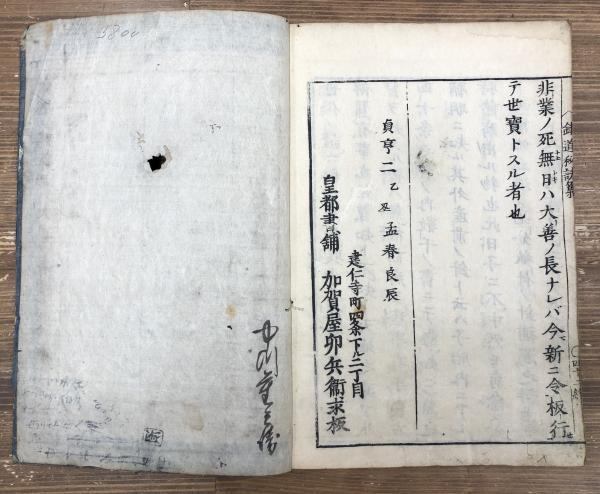 針道秘訣集
非業ノ死無日ハ大善ノ長ナレバ今新ニ令板行
テ世寶トスル者也
貞享二乙丑孟春良辰
建仁寺町四条下ル二丁目
皇都書舗 加賀屋卯兵衛求板
5800